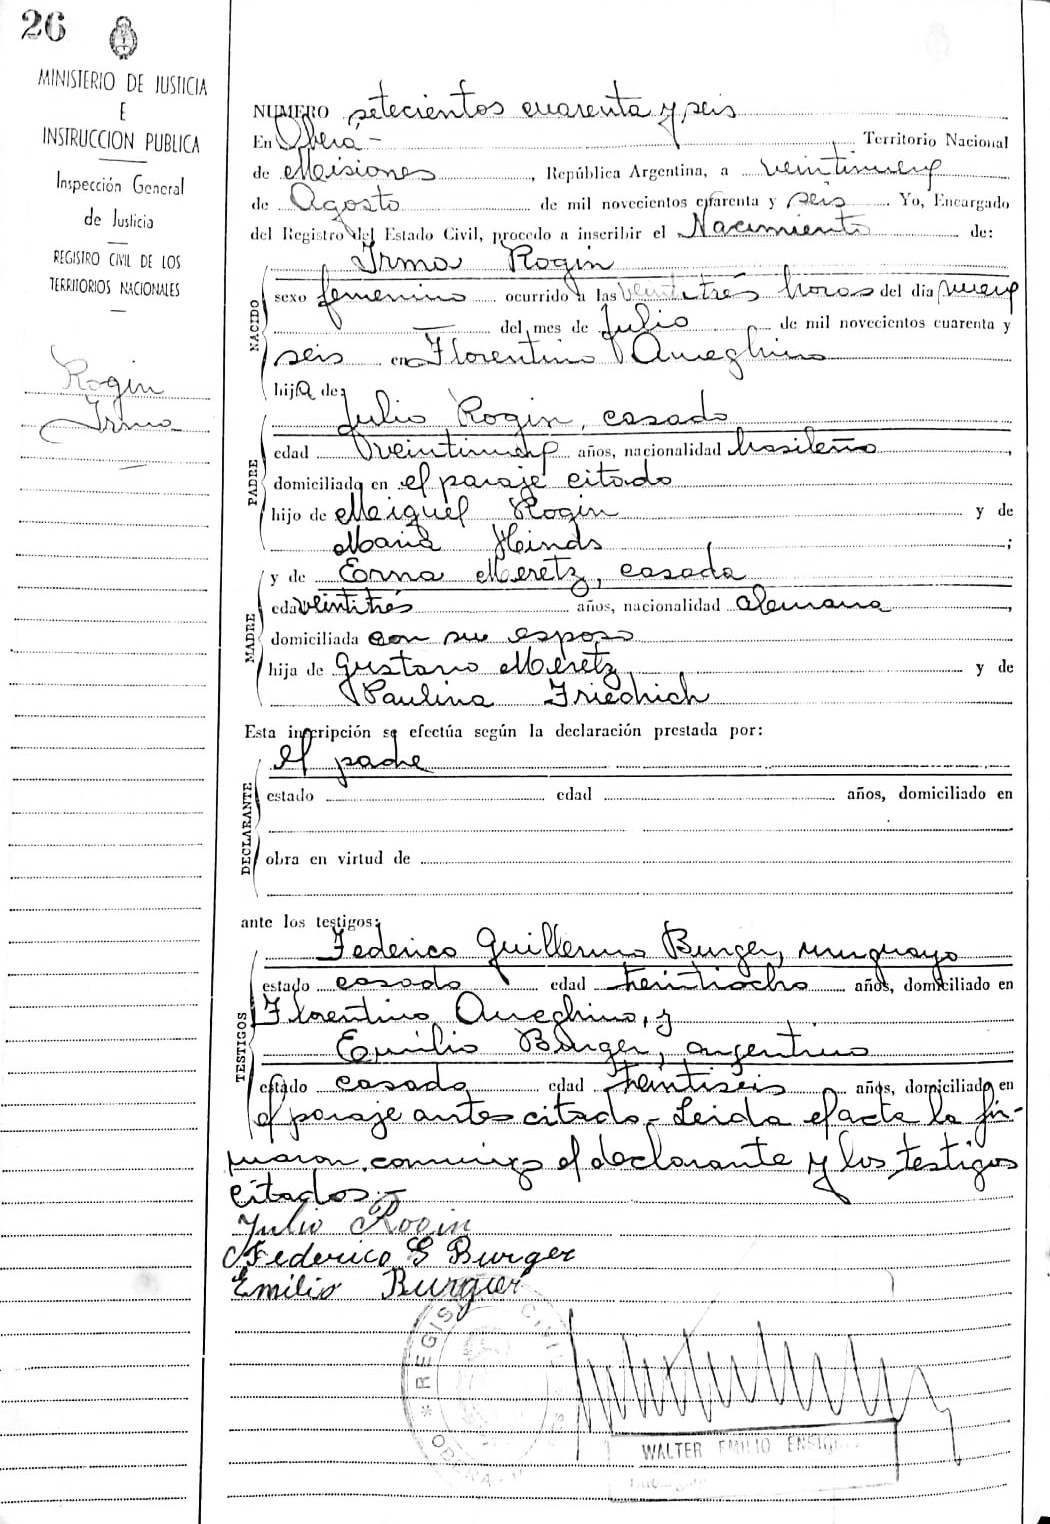 26
MINISTERIO DE JUSTICIA
E
INSTRUCCION PUBLICA
Inspección General
de Justicia
REGISTRO CIVIL DE LOS
TERRITORIOS NACIONALES
Rogin
Irma
NUMERO setecientos cuarenta y seis
En Oberá - Territorio Nacional
de Misiones, República Argentina, a veintinueve
de Agosto de mil novecientos cuarenta y seis. Yo, Encargado
del Registro del Estado Civil, procedo a inscribir el Nacimiento de:
NACIDO
Irma Rogin
sexo femenino ocurrido a las veintitrés horas del día nueve
del mes de Julio de mil novecientos cuarenta y
seis en Florentino Ameghino
hija de:
PADRE
Julio Rogin, casado
edad veintinueve años, nacionalidad brasileño,
domiciliado en el paraje citado
hijo de Miguel Rogin y de
María Hinds;
MADRE
y de Erna Meretz, casada
edad veintitrés años, nacionalidad alemana,
domiciliada con su esposo
hija de Gustavo Meretz y de
Paulina Friedrich
Esta inscripción se efectúa según la declaración prestada por:
DECLARANTE
el padre
estado edad años, domiciliado en
obra en virtud de
ante los testigos:
TESTIGOS
Federico Guillermo Burger, uruguayo
estado casado edad treintiocho años, domiciliado en
Florentino Ameghino, y
Emilio Burger, argentino
estado casado edad treintiseis años, domiciliado en
el paraje antes citado - Leida el acta la fir-
maron conmigo el declarante y los testigos
citados.-
Julio Rogin
Federico G Burger
Emilio Burguer
* REGISTRO CIVIL *
WALTER EMILIO